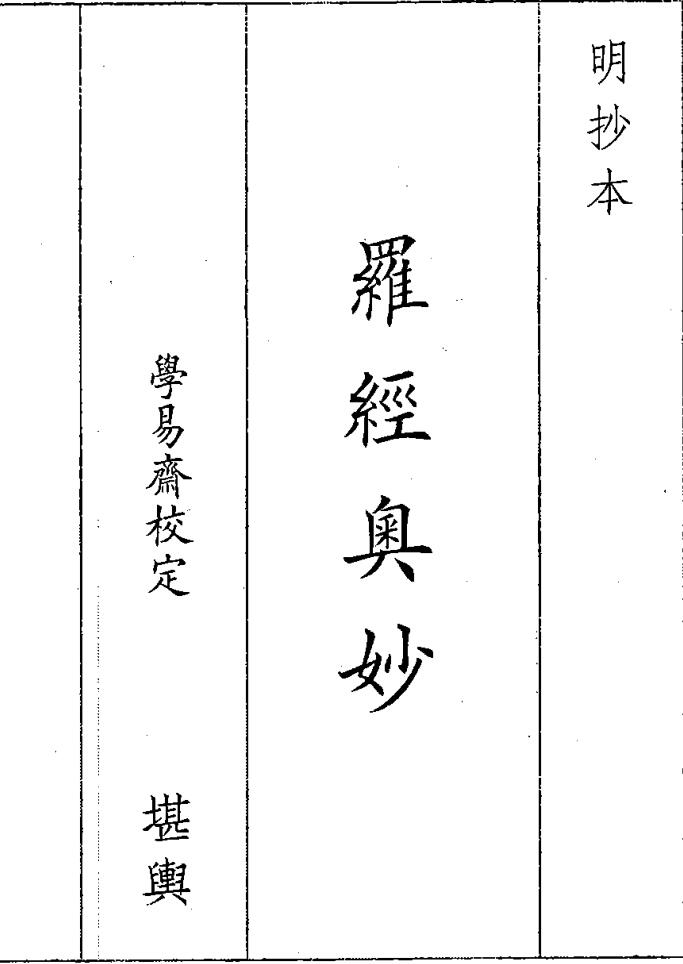 明抄本
羅經奧妙
學易齋校定
堪輿